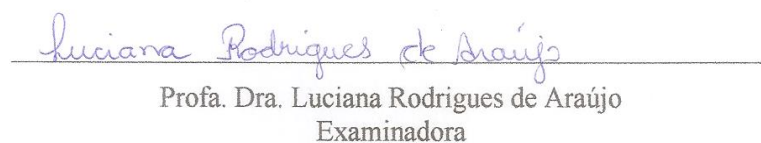 Luciana Rodrigues de Araújo
Profa. Dra. Luciana Rodrigues de Araújo
Examinadora